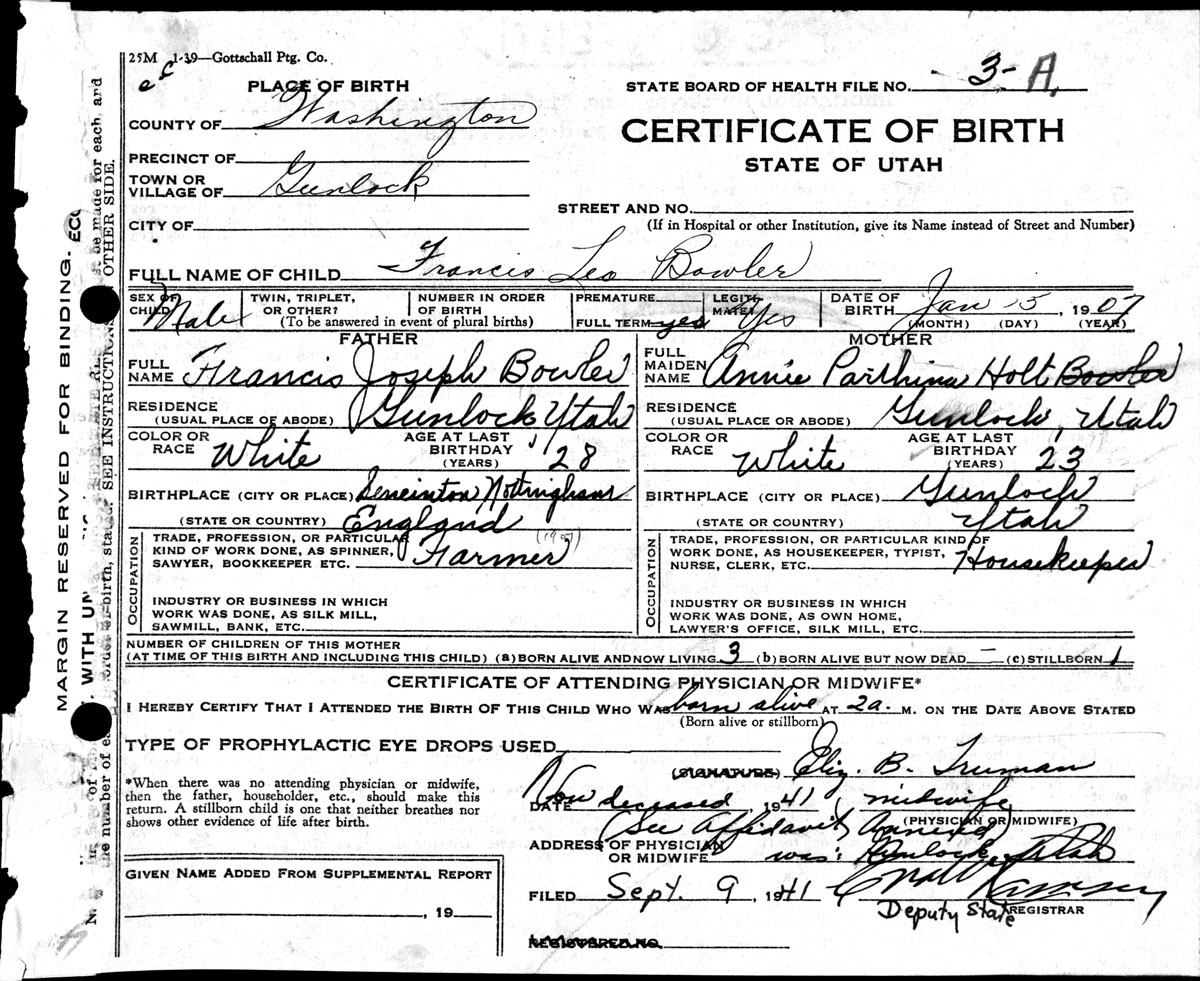 25M 1-39—Gottschall Ptg. Co.
PLACE OF BIRTH
STATE BOARD OF HEALTH FILE NO. 3-A.
COUNTY OF Washington
CERTIFICATE OF BIRTH
STATE OF UTAH
PRECINCT OF
TOWN OR VILLAGE OF Gunlock
STREET AND NO.
(If in Hospital or other Institution, give its Name instead of Street and Number)
CITY OF
FULL NAME OF CHILD Francis Leo Bowler
SEX OF CHILD Male
TWIN, TRIPLET, OR OTHER?
NUMBER IN ORDER OF BIRTH
(To be answered in event of plural births)
PREMATURE
FULL TERM yes
LEGITIMATE? Yes
DATE OF BIRTH Jan 5, 1907
(MONTH) (DAY) (YEAR)
FATHER
FULL NAME Francis Joseph Bowler
RESIDENCE (USUAL PLACE OF ABODE) Gunlock Utah
COLOR OR RACE White
AGE AT LAST BIRTHDAY (YEARS) 28
BIRTHPLACE (CITY OR PLACE) Sneinton Nottingham
(STATE OR COUNTRY) England
OCCUPATION
TRADE, PROFESSION, OR PARTICULAR KIND OF WORK DONE, AS SPINNER, SAWYER, BOOKKEEPER ETC. Farmer (1907)
INDUSTRY OR BUSINESS IN WHICH WORK WAS DONE, AS SILK MILL, SAWMILL, BANK, ETC.
MOTHER
FULL MAIDEN NAME Annie Parthina Holt Bowler
RESIDENCE (USUAL PLACE OF ABODE) Gunlock, Utah
COLOR OR RACE White
AGE AT LAST BIRTHDAY (YEARS) 23
BIRTHPLACE (CITY OR PLACE) Gunlock
(STATE OR COUNTRY) Utah
OCCUPATION
TRADE, PROFESSION, OR PARTICULAR KIND OF WORK DONE, AS HOUSEKEEPER, TYPIST, NURSE, CLERK, ETC. Housekeeper
INDUSTRY OR BUSINESS IN WHICH WORK WAS DONE, AS OWN HOME, LAWYER'S OFFICE, SILK MILL, ETC.
NUMBER OF CHILDREN OF THIS MOTHER
(AT TIME OF THIS BIRTH AND INCLUDING THIS CHILD) (a) BORN ALIVE AND NOW LIVING 3 (b) BORN ALIVE BUT NOW DEAD — (c) STILLBORN 1
CERTIFICATE OF ATTENDING PHYSICIAN OR MIDWIFE*
I HEREBY CERTIFY THAT I ATTENDED THE BIRTH OF THIS CHILD WHO WAS born alive AT 2 a. M. ON THE DATE ABOVE STATED
(Born alive or stillborn)
TYPE OF PROPHYLACTIC EYE DROPS USED
*When there was no attending physician or midwife,
then the father, householder, etc., should make this
return. A stillborn child is one that neither breathes nor
shows other evidence of life after birth.
(SIGNATURE) Eliz. B. Truman
Now deceased
DATE , 1941 midwife
(PHYSICIAN OR MIDWIFE)
(See Affidavit Annexed)
ADDRESS OF PHYSICIAN OR MIDWIFE was: Gunlock, Utah
GIVEN NAME ADDED FROM SUPPLEMENTAL REPORT
, 19
FILED Sept. 9, 1941
Deputy State REGISTRAR
REGISTERED NO.
MARGIN RESERVED FOR BINDING.
WITH UN
be made for each, and
OTHER SIDE.
SEE INSTRUCTIONS